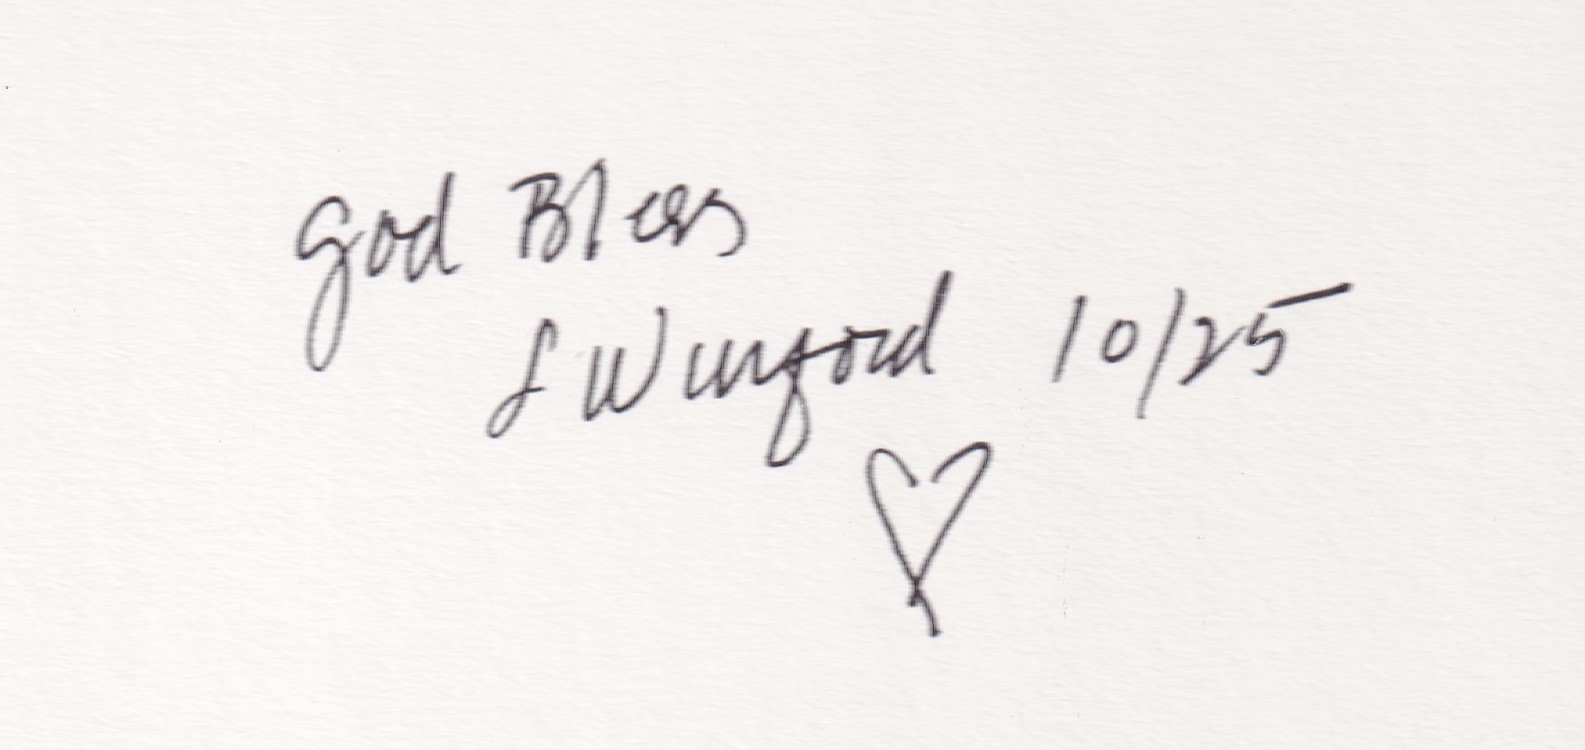 God Bless
L Winford 10/25